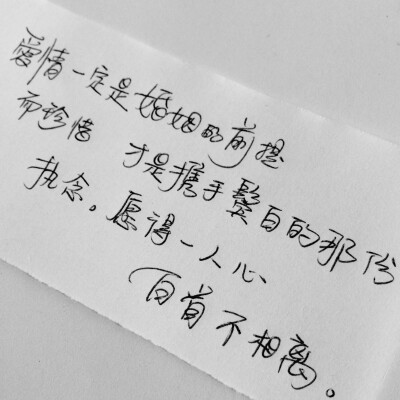 爱情一定是婚姻的前提
而珍惜 才是携手鬓白的那份
执念。愿得一人心
白首不相离。